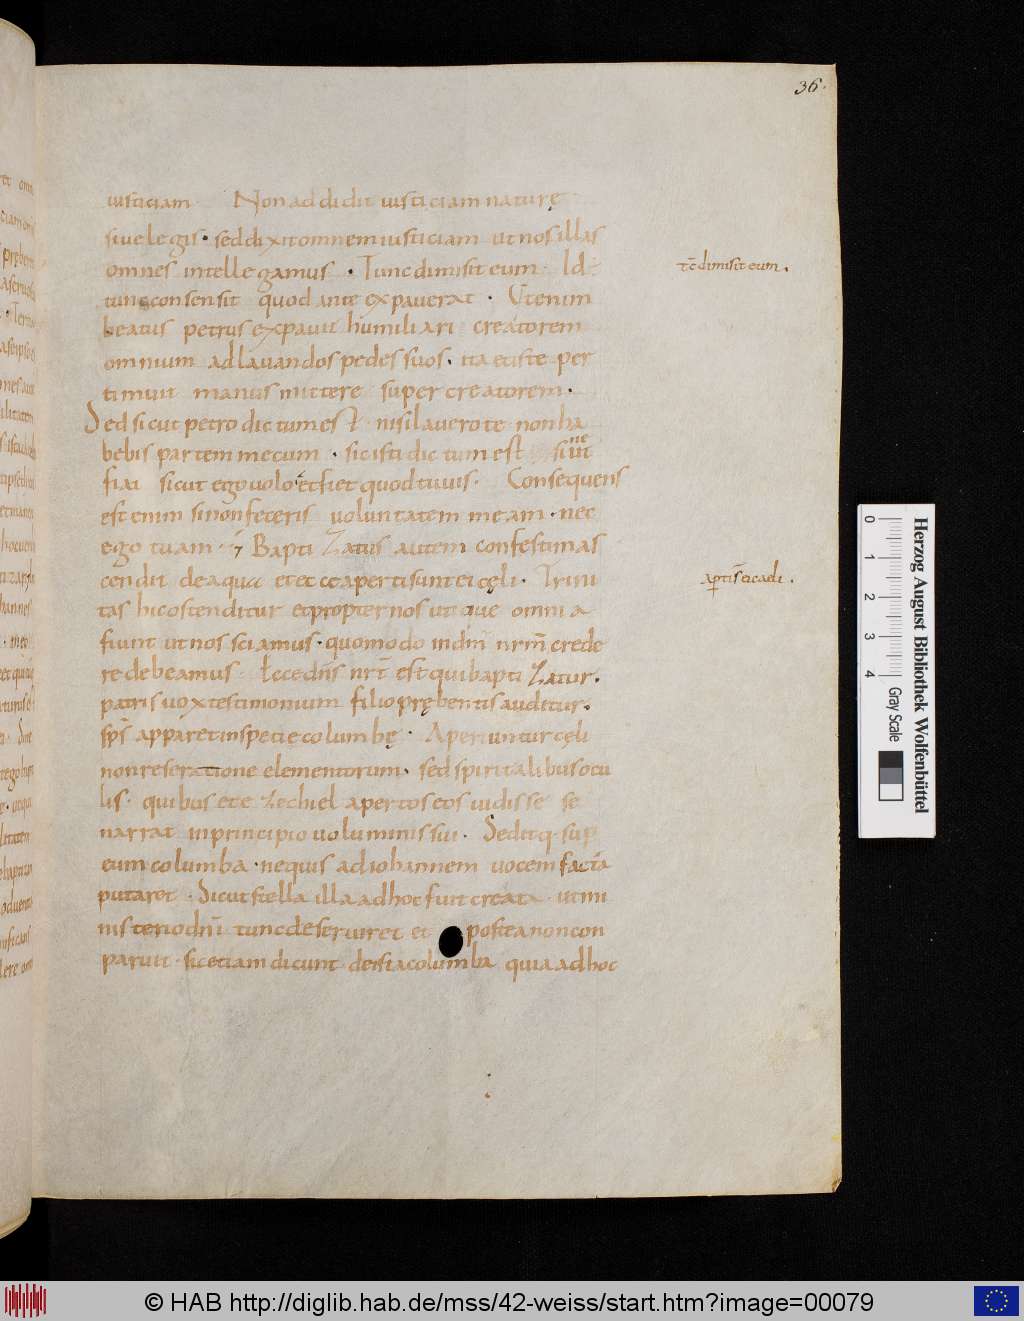 36.
iusticiam Non addidit iusticiam naturę
siue legis · sed dixit omnem iusticiam ut nos illas
omnes intellegamus · Tunc dimisit eum Id
tc̄ dimisit eum .
tunc consensit quod ante expauerat · Utenim
beatus petrus expauit humiliari creatorem
omnium ad lauandos pedes suos · ita et iste per
timuit manus mittere super creatorem ·
Sed sicut petro dictum est · nisi lauero te non ha
bebis partem mecum · sic isti dictum est
fiai sicut ego uolo et fiet quod tu uis · Consequens
est enim si non feceris uoluntatem meam · nec
ego tuam · Baptizatus autem confestim as
cendit de aqua et ecce aperti sunt ei cęli · Trini
ap̄ti s̄ ei cadi .
tas hic ostenditur et propter nos utique omnia
fiunt ut nos sciamus · quomodo in dn̄m nr̄m crede
re debeamus · Ecce dn̄s nr̄ est qui baptizatur .
patris uox testimonium filio prębentis auditur .
sp̄s apparet in specie columbę · Aperiuntur cęli
non reseratione elementorum · sed spiritalibus ocu
lis · quibus et ezechiel apertos eos uidisse se
narrat in principio uoluminis sui · Sedit q· sup
eum columba · ne quis ad iohannem uocem facta
putaret · Sicut stella illa ad hoc fuit creata · ut mi
nisterio dn̄i tunc deseruiret et postea non con
paruit · sic etiam dicunt de ista columba quia ad hoc
Herzog August Bibliothek Wolfenbüttel
0 1 2 3 4
Gray Scale
© HAB http://diglib.hab.de/mss/42-weiss/start.htm?image=00079